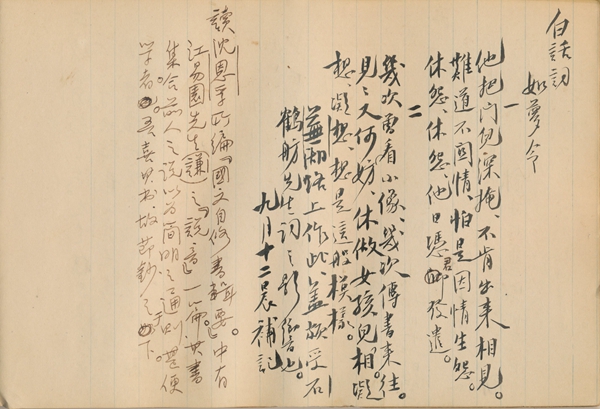 白話詞
如夢令
一
他把門兒深掩、不肯出來相見。
難道不關情、怕是因情生怨。
休怨、休怨、他日憑君發遣。
二
幾次曾看小像、幾次傳書來往。
見見又何妨、休做女孩兒相。凝
想、凝想、想是這般模樣。
蕪湖路上作此、蓋頗受石
鶴舫先生詞之影響也。
九月十二晨補記
讀沈恩孚所編『國文自修書輯要』中有
江易園先生謙之『說音』一篇。其書
集合前人之說以為簡明之通則、甚便
學者。吾喜其書、故節鈔之下。